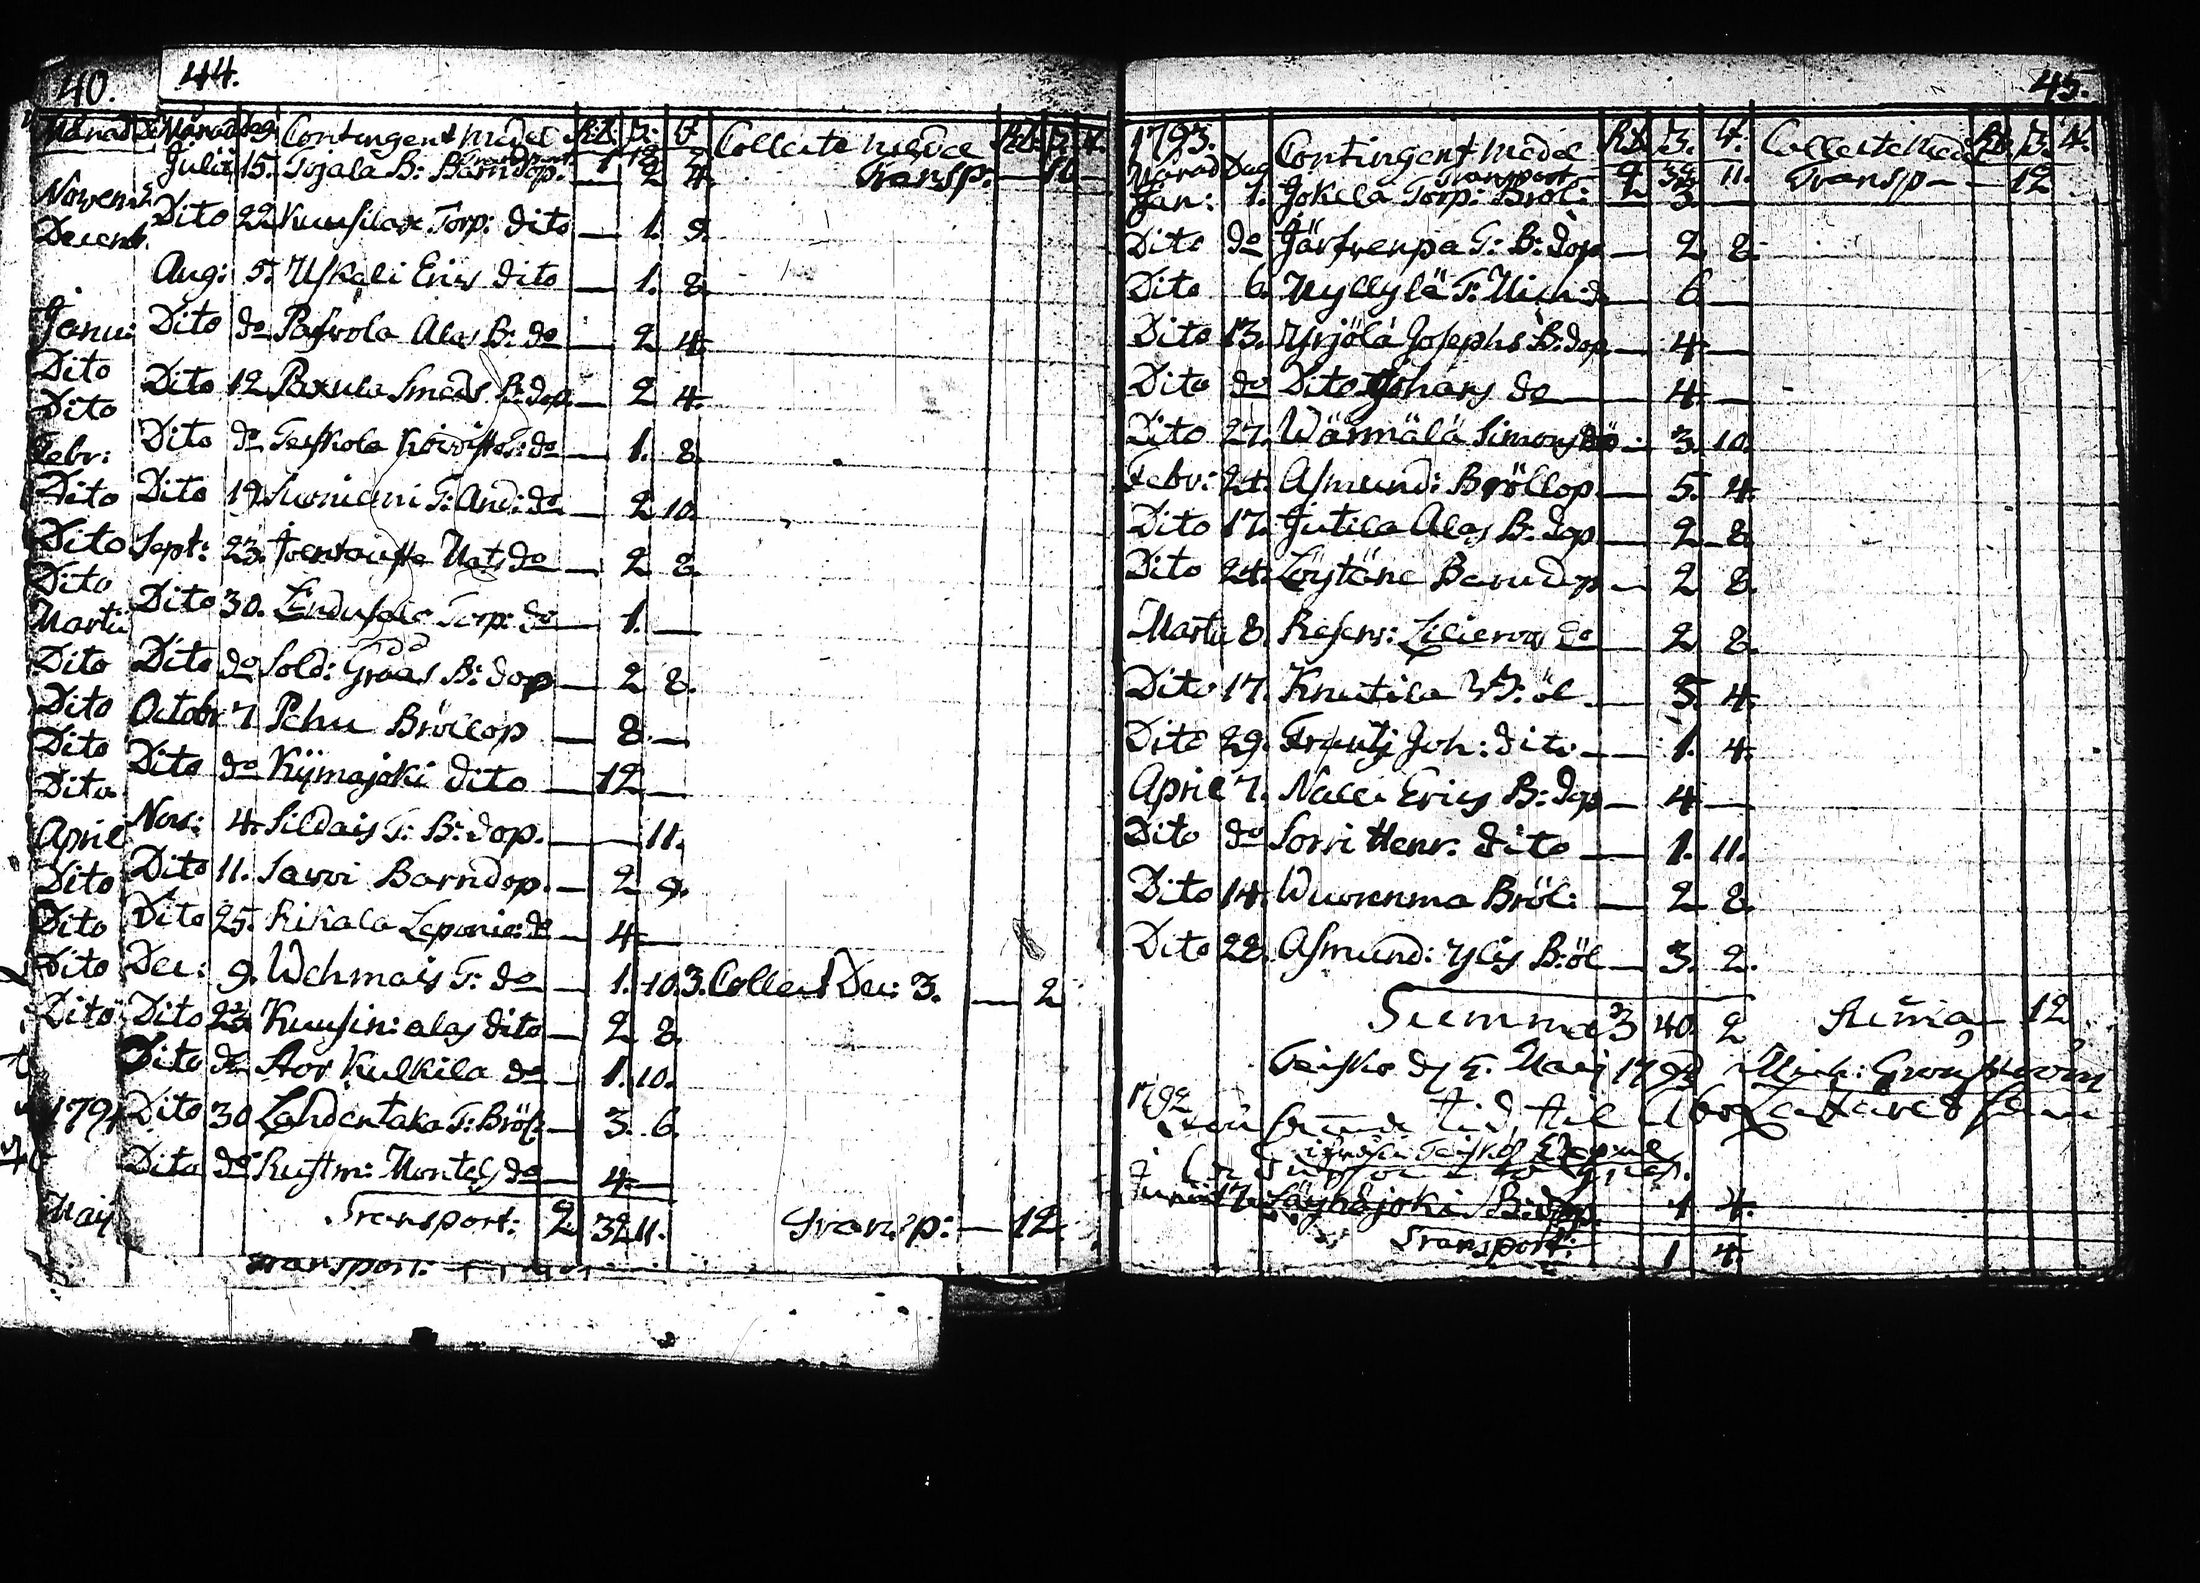 40.
Månad
Novemb:
Decemb.
Janu:
Dito
Dito
Febr:
Dito
Dito
Dito
Martii
Dito
Dito
Dito
Dito
April
Dito
Dito
Dito
Dito
1791
Maij
44.
Månad Dag Contingent medel R:d. ß: d. Collecte medel R:d. ß: d.
Transport 1 18 2 Transp: — 10 —
Julii 15. Pojala B: Barndop. — 2 4.
Dito 22 Kuusilax Torp: dito — 1. 9.
Aug: 5. Uskali Erics dito — 1. 8.
Dito do Pafvola Alas B: do — 2 4.
Dito 12 Paxula Smeds B: dop. — 2 4.
Dito do Teiskola do — 1. 8.
Dito 19. Suoniemi T: And: do — 2 10.
Sept: 23. Mats do — 2 8.
Dito 30. Torp: do — 1. —
Dito do Sold: Graas B: dop — 2 8.
Octobr 7 Pehu Bröllop — 8. —
Dito do Kijmajoki dito — 12 —
Nov: 4. Sildais T: B: dop. — — 11.
Dito 11. Savvi Barndop. — 2 9.
Dito 25. Kikala Leponie: do — 4 —
Dec: 9. Wehmais T: do — 1. 10. 3. Collect Dec: 3. — 2
Dito 23 Kuusin: alas dito — 2 8.
Dito do Stor Kulkila do — 1. 10.
Dito 30 Lahdentaka T: Bröl: — 3. 6.
Dito do Rustm: Montel do — 4 —
Transport: 2 32 11. Transp: — 12
Transport:
45.
1793.
Månad Dag Contingent medel R:d. ß. d. Collecte Medel R:d. ß. d.
Transport — 2 32 11. Transp — — 12
Jan: 1. Jokela Torp: Bröl: — 3 —
Dito do Järfvenpä T: B: dop — 2 8.
Dito 6. Myllylä T: Mich: do — 6 —
Dito 13. Yrjölä Josephs B: dop — 4 —
Dito do Dito Johans do — 4 —
Dito 27. Wärmälä Simons — 3. 10.
Febr: 24. Asmund: Bröllop — 5. 4.
Dito 17. Jutila Alas B: dop — 2 8.
Dito 24. Löytäne Barndop — 2 8.
Martii 8. Reserv: do — 2 8.
Dito 17. Knutila B: öl — 5. 4.
Dito 29. Frantz Joh: dito — 1. 4.
April 7. Nalli Erics B: dop — 4 —
Dito do Sorri Henr. dito — 1. 11.
Dito 14. Wuorenma Bröl: — 2 8.
Dito 28. Asmund: Ylis B: öl — 3. 2.
Summa 3 40. 2 Suma — 12
Teisko dy 5. Maij 1793 Mich: Grönström
1792
tid, til Åbo Lazaret
17. Löyhäjoki B: dop 1 4.
Transport: 1 4.